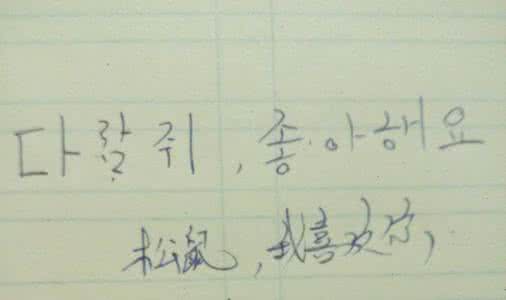 다람쥐, 좋아해요
松鼠, 我喜欢你,